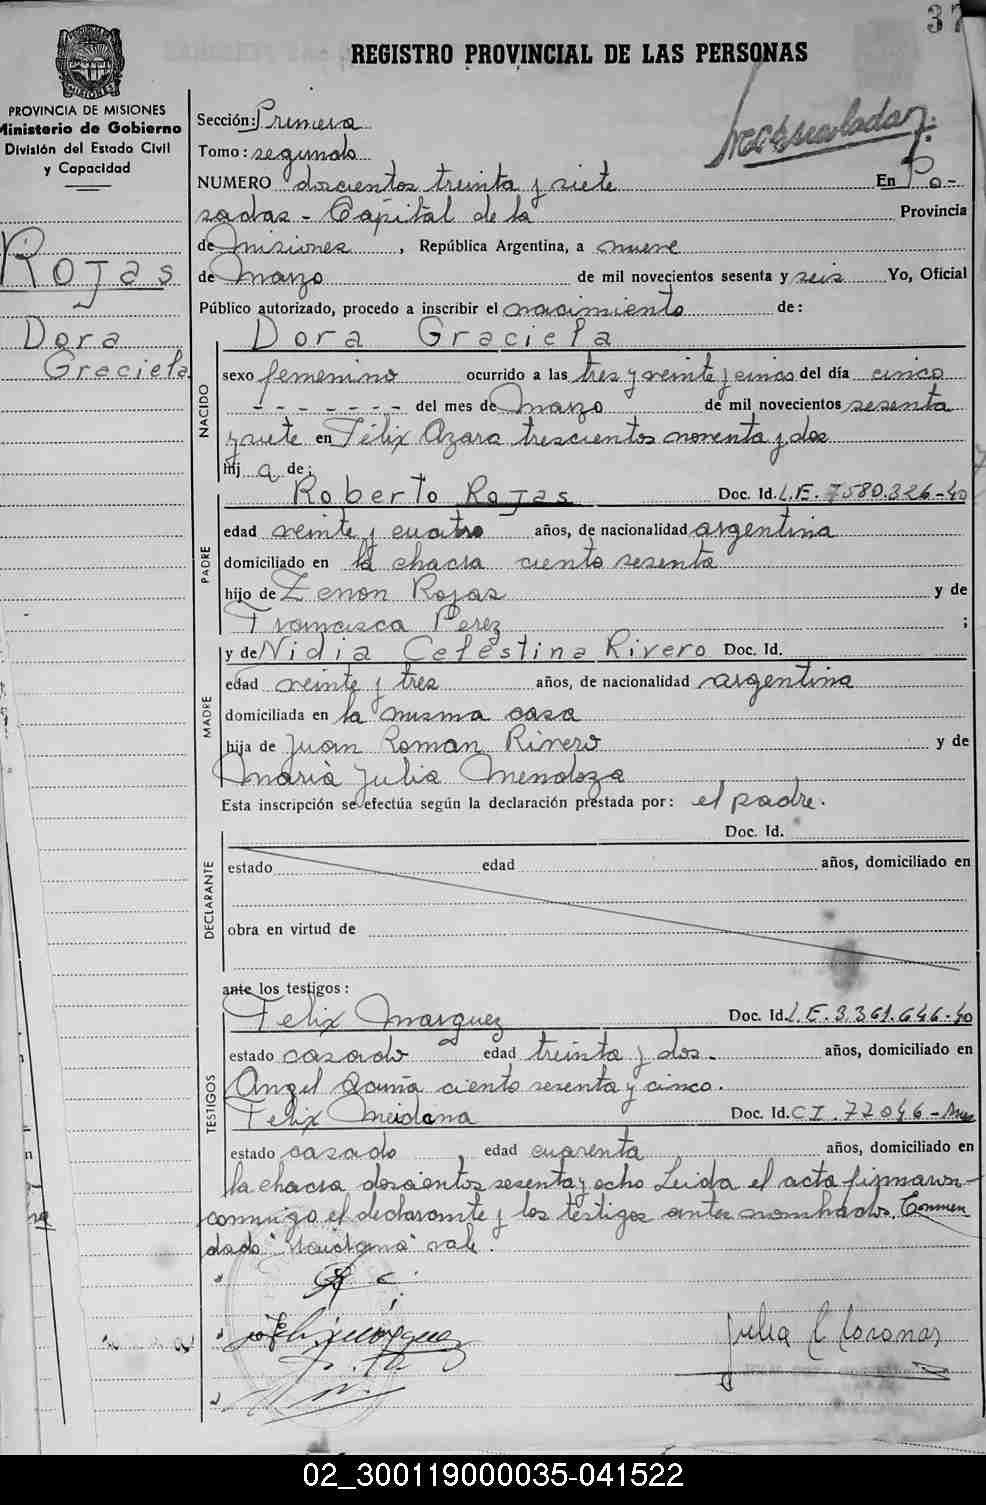 37
REGISTRO PROVINCIAL DE LAS PERSONAS
PROVINCIA DE MISIONES
Ministerio de Gobierno
División del Estado Civil
y Capacidad
Rojas
Dora
Graciela
Sección: Primera
Tomo: segundo
NUMERO doscientos treinta y siete En Po-
sadas - Capital de la Provincia
de Misiones, República Argentina, a nueve
de Marzo de mil novecientos sesenta y seis Yo, Oficial
Público autorizado, procedo a inscribir el nacimiento de:
NACIDO
Dora Graciela
sexo femenino ocurrido a las tres y veinte y cinco del día cinco
- - - - - - - del mes de Marzo de mil novecientos sesenta
y siete en Félix Azara trescientos noventa y dos
hij a de:
PADRE
Roberto Rojas Doc. Id. L.E. 7580.326-40
edad veinte y cuatro años, de nacionalidad argentina
domiciliado en la chacra ciento sesenta
hijo de Zenon Rojas y de
Francisca Perez ;
MADRE
y de Nidia Celestina Rivero Doc. Id.
edad veinte y tres años, de nacionalidad argentina
domiciliada en la misma casa
hija de Juan Roman Rivero y de
Maria Julia Mendoza
Esta inscripción se efectúa según la declaración prestada por: el padre.
DECLARANTE
Doc. Id.
estado edad años, domiciliado en
obra en virtud de
ante los testigos:
TESTIGOS
Felix Marquez Doc. Id. L.E. 3.361.646-40
estado casado edad treinta y dos. años, domiciliado en
Angel Acuña ciento sesenta y cinco.
Felix Meidana Doc. Id. C I. 72046-
estado casado, edad cuarenta años, domiciliado en
la chacra doscientos sesenta y ocho Leida el acta firmaron
conmigo el declarante y los testigos antes nombrados. Enmen
dado " Meidana" vale.